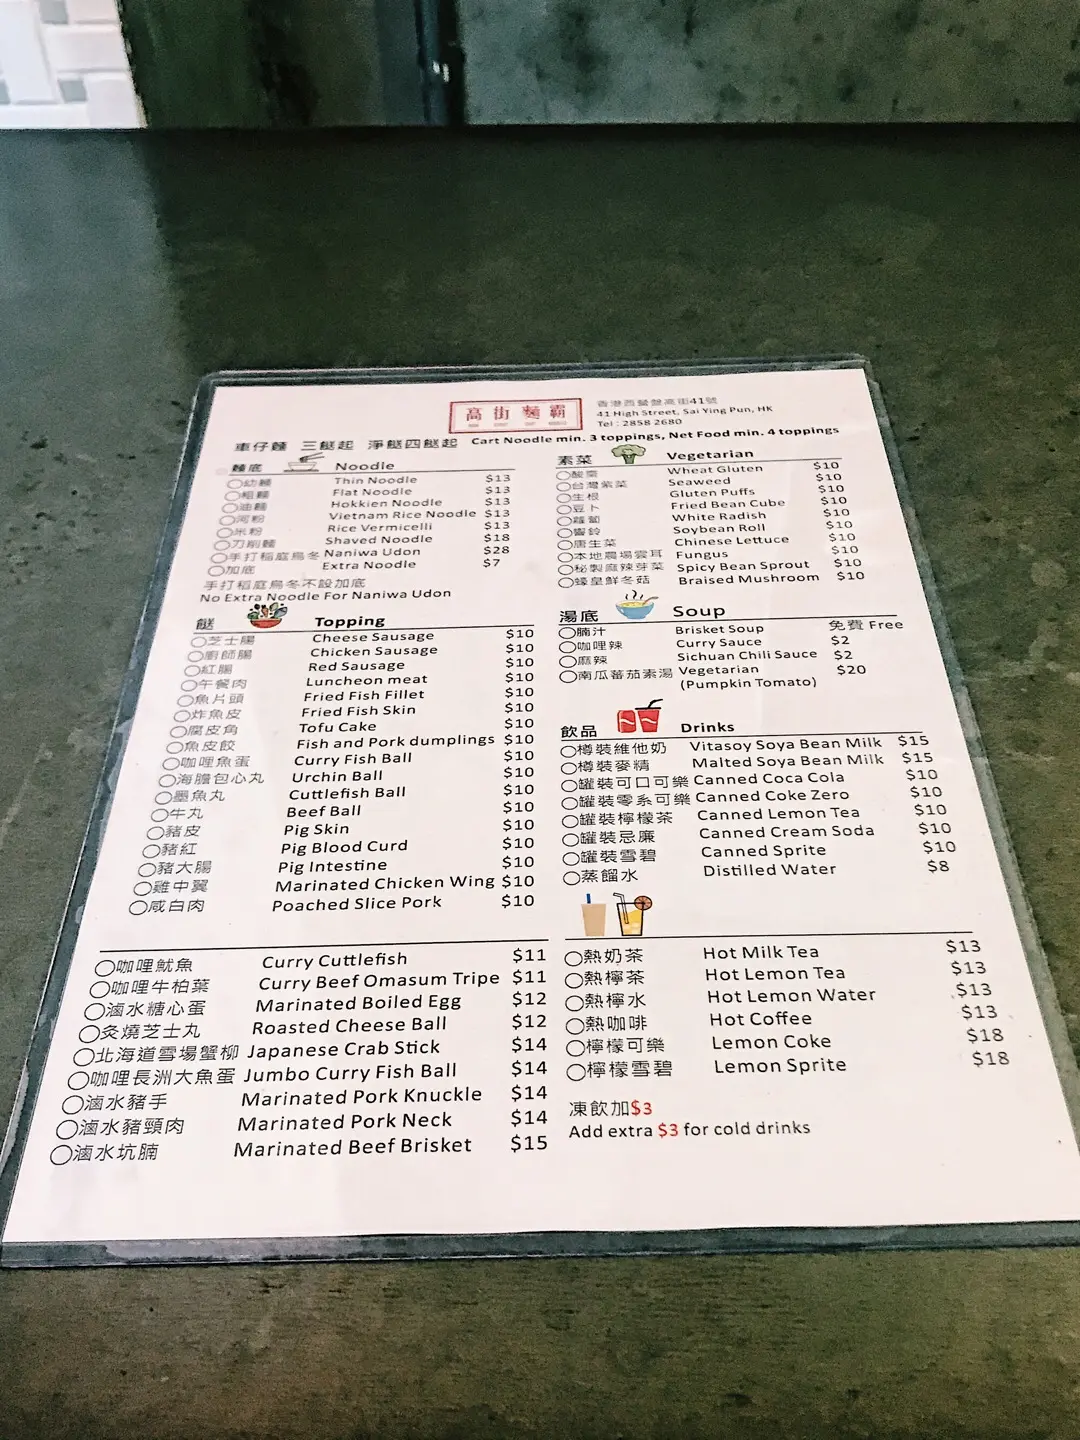 高街麵霸
香港西營盤高街41號
41 High Street, Sai Ying Pun, HK
Tel : 2858 2680
車仔麵 三餸起 淨餸四餸起 Cart Noodle min. 3 toppings, Net Food min. 4 toppings
麵底 Noodle
幼麵 Thin Noodle $13
粗麵 Flat Noodle $13
油麵 Hokkien Noodle $13
河粉 Vietnam Rice Noodle $13
米粉 Rice Vermicelli $13
刀削麵 Shaved Noodle $18
手打稻庭烏冬 Naniwa Udon $28
加底 Extra Noodle $7
手打稻庭烏冬不設加底
No Extra Noodle For Naniwa Udon
餸 Topping
芝士腸 Cheese Sausage $10
廚師腸 Chicken Sausage $10
紅腸 Red Sausage $10
午餐肉 Luncheon meat $10
魚片頭 Fried Fish Fillet $10
炸魚皮 Fried Fish Skin $10
腐皮角 Tofu Cake $10
魚皮餃 Fish and Pork dumplings $10
咖哩魚蛋 Curry Fish Ball $10
海膽包心丸 Urchin Ball $10
墨魚丸 Cuttlefish Ball $10
牛丸 Beef Ball $10
豬皮 Pig Skin $10
豬紅 Pig Blood Curd $10
豬大腸 Pig Intestine $10
雞中翼 Marinated Chicken Wing $10
咸白肉 Poached Slice Pork $10
咖哩魷魚 Curry Cuttlefish $11
咖哩牛柏葉 Curry Beef Omasum Tripe $11
滷水糖心蛋 Marinated Boiled Egg $12
炙燒芝士丸 Roasted Cheese Ball $12
北海道雪場蟹柳 Japanese Crab Stick $14
咖哩長洲大魚蛋 Jumbo Curry Fish Ball $14
滷水豬手 Marinated Pork Knuckle $14
滷水豬頸肉 Marinated Pork Neck $14
滷水坑腩 Marinated Beef Brisket $15
素菜 Vegetarian
酸齋 Wheat Gluten $10
台灣紫菜 Seaweed $10
生根 Gluten Puffs $10
豆卜 Fried Bean Cube $10
蘿蔔 White Radish $10
響鈴 Soybean Roll $10
唐生菜 Chinese Lettuce $10
本地農場雲耳 Fungus $10
秘製麻辣芽菜 Spicy Bean Sprout $10
蠔皇鮮冬菇 Braised Mushroom $10
湯底 Soup
腩汁 Brisket Soup 免費 Free
咖哩辣 Curry Sauce $2
麻辣 Sichuan Chili Sauce $2
南瓜蕃茄素湯 Vegetarian $20
(Pumpkin Tomato)
飲品 Drinks
樽裝維他奶 Vitasoy Soya Bean Milk $15
樽裝麥精 Malted Soya Bean Milk $15
罐裝可口可樂 Canned Coca Cola $10
罐裝零系可樂 Canned Coke Zero $10
罐裝檸檬茶 Canned Lemon Tea $10
罐裝忌廉 Canned Cream Soda $10
罐裝雪碧 Canned Sprite $10
蒸餾水 Distilled Water $8
熱奶茶 Hot Milk Tea $13
熱檸茶 Hot Lemon Tea $13
熱檸水 Hot Lemon Water $13
熱咖啡 Hot Coffee $13
檸檬可樂 Lemon Coke $18
檸檬雪碧 Lemon Sprite $18
凍飲加$3
Add extra $3 for cold drinks